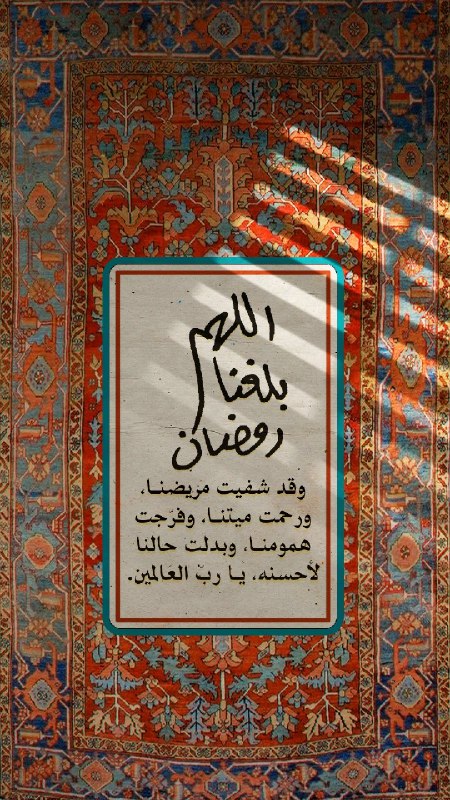 اللهم
بلغنا
رمضان
وقد شفيت مريضنا،
ورحمت ميتنا، وفرّجت
همومنا، وبدلت حالنا
لأحسنه، يا ربّ العالمين.